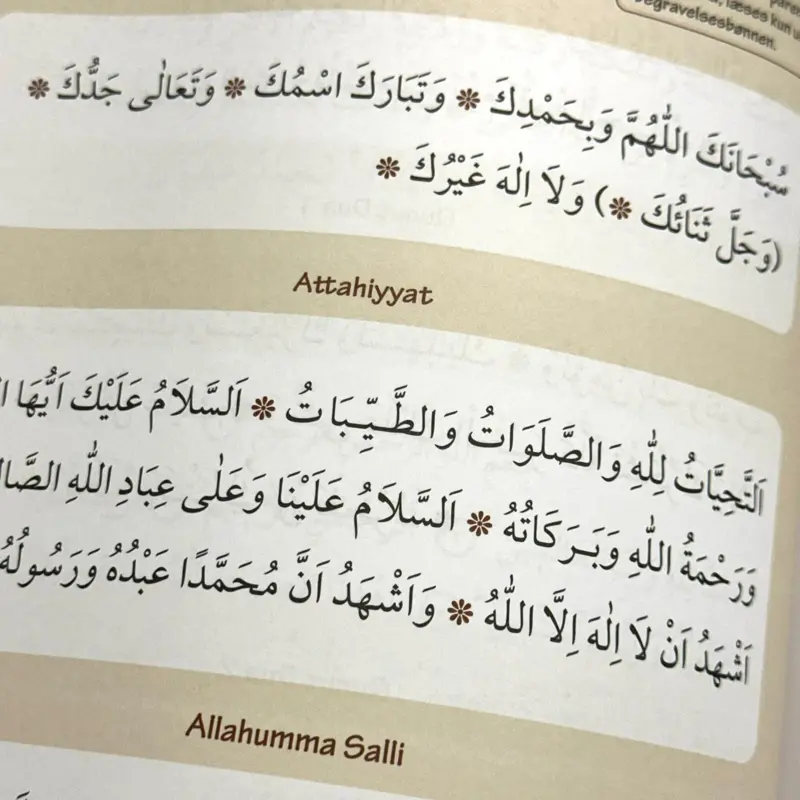 læses kun u
egravelsesbønnen.
سُبْحَانَكَ اللّٰهُمَّ وَبِحَمْدِكَ ❋ وَتَبَارَكَ اسْمُكَ ❋ وَتَعَالٰى جَدُّكَ ❋
(وَجَلَّ ثَنَائُكَ ❋) وَلَا اِلٰهَ غَيْرُكَ ❋
Attahiyyat
اَلتَّحِيَّاتُ لِلّٰهِ وَالصَّلَوَاتُ وَالطَّيِّبَاتُ ❋ اَلسَّلَامُ عَلَيْكَ اَيُّهَا
وَرَحْمَةُ اللّٰهِ وَبَرَكَاتُهُ ❋ اَلسَّلَامُ عَلَيْنَا وَعَلٰى عِبَادِ اللّٰهِ الصَّا
اَشْهَدُ اَنْ لَا اِلٰهَ اِلَّا اللّٰهُ ❋ وَاَشْهَدُ اَنَّ مُحَمَّدًا عَبْدُهُ وَرَسُولُهُ
Allahumma Salli